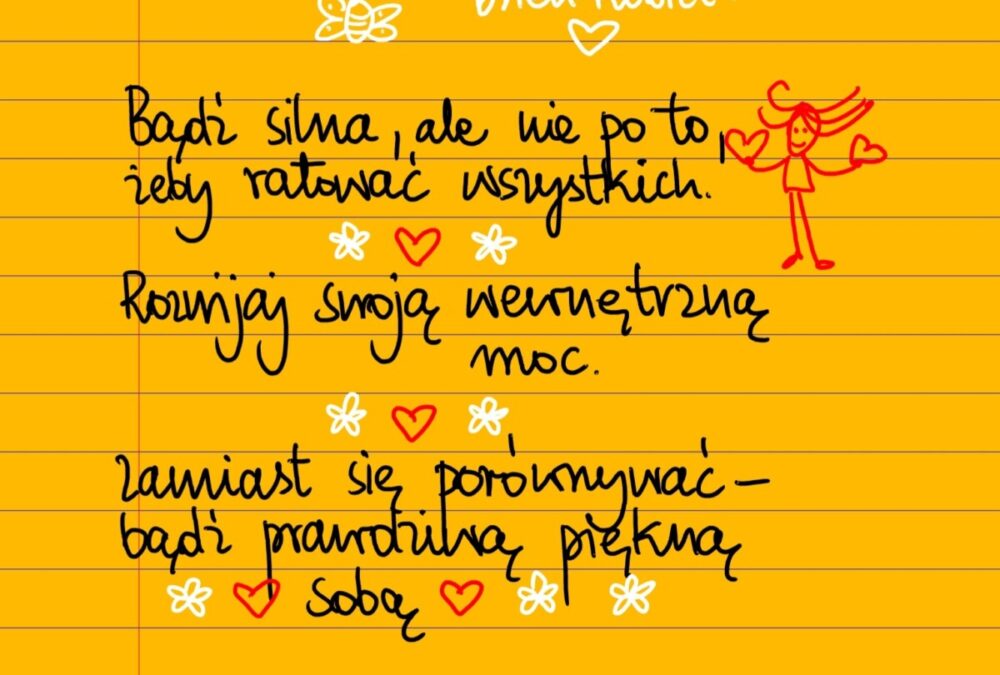 Bądź silna, ale nie po to,
żeby ratować wszystkich.
Rozwijaj swoją wewnętrzną
moc.
Zamiast się porównywać –
bądź prawdziwą piękną
sobą